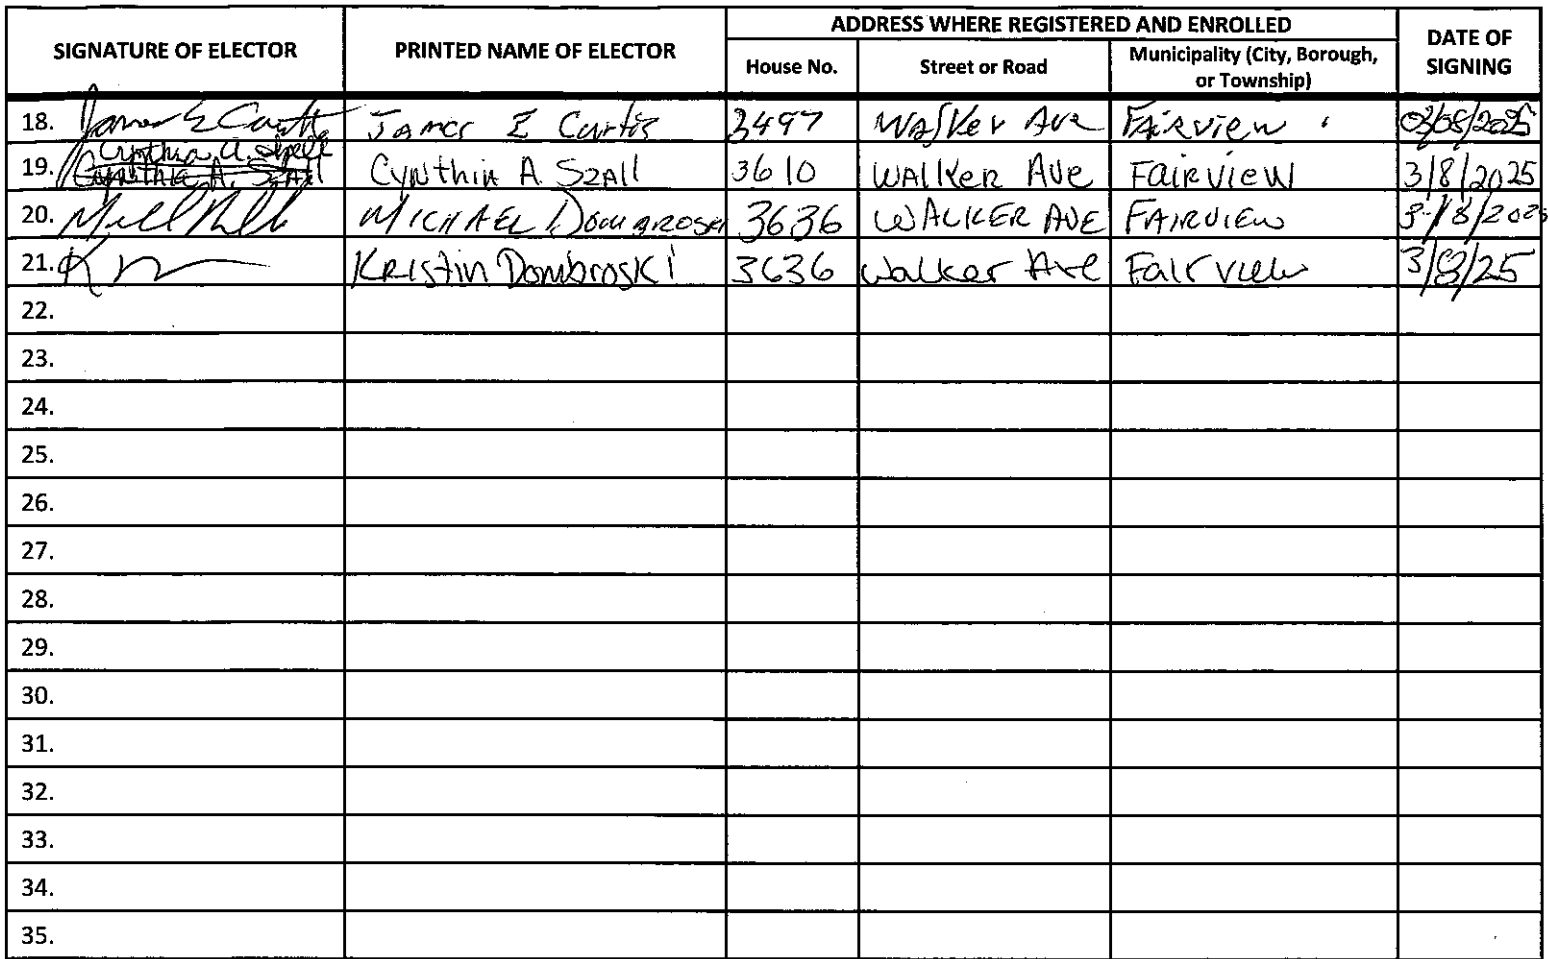 SIGNATURE OF ELECTOR PRINTED NAME OF ELECTOR ADDRESS WHERE REGISTERED AND ENROLLED DATE OF SIGNING
House No. Street or Road Municipality (City, Borough, or Township)
18. James E Curtis James E Curtis 3497 Walker Ave FAIRVIEW 03/08/2025
Cynthia A. Szall
19. Cynthia A. Szall Cynthia A. Szall 3610 Walker Ave Fairview 3/8/2025
20. MICHAEL Dombroski 3636 WALKER AVE FAIRVIEW 3/8/2025
21. Kristin Dombroski 3636 Walker Ave Fairview 3/8/25
22.
23.
24.
25.
26.
27.
28.
29.
30.
31.
32.
33.
34.
35.